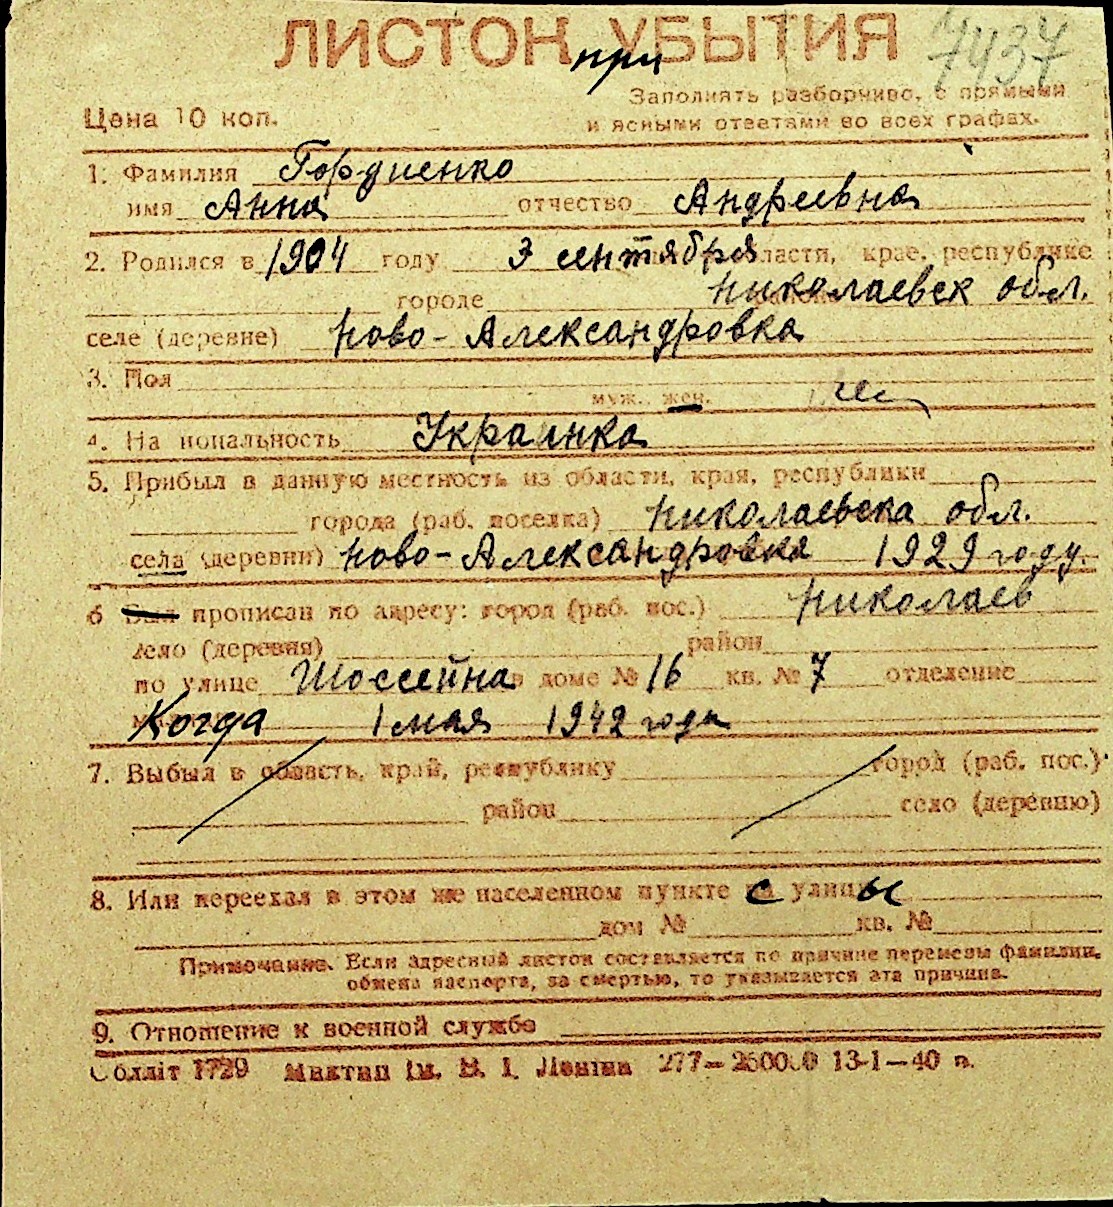 ЛИСТОК УБЫТИЯ 7437
при
Заполнять разборчиво, с прямыми
Цена 10 коп. и ясными ответами во всех графах.
1. Фамилия Гордиенко
имя Анна отчество Андреевна
2. Родился в 1904 году 3 сентября области, крае, республике
городе Николаевск обл.
селе (деревне) Ново-Александровка
3. Пол
муж., жен.
4. Национальность Украинка
5. Прибыл в данную местность из области, края, республики
города (раб. поселка) Николаевска обл.
села (деревни) Ново-Александровка 1929 году.
6 Был прописан по адресу: город (раб. пос.) Николаев
село (деревня) район
по улице Шоссейна в доме № 16 кв. № 7 отделение
Когда 1 мая 1942 года
7. Выбыл в область, край, республику город (раб. пос.)
район село (деревню)
8. Или переехал в этом же населенном пункте с улицы
дом № кв. №
Примечание. Если адресный листок составляется по причине перемены фамилии,
обмена паспорта, за смертью, то указывается эта причина.
9. Отношение к военной службе
Облліт 1729 Миктип ім. В. І. Леніна 277—250000 13-1—40 п.